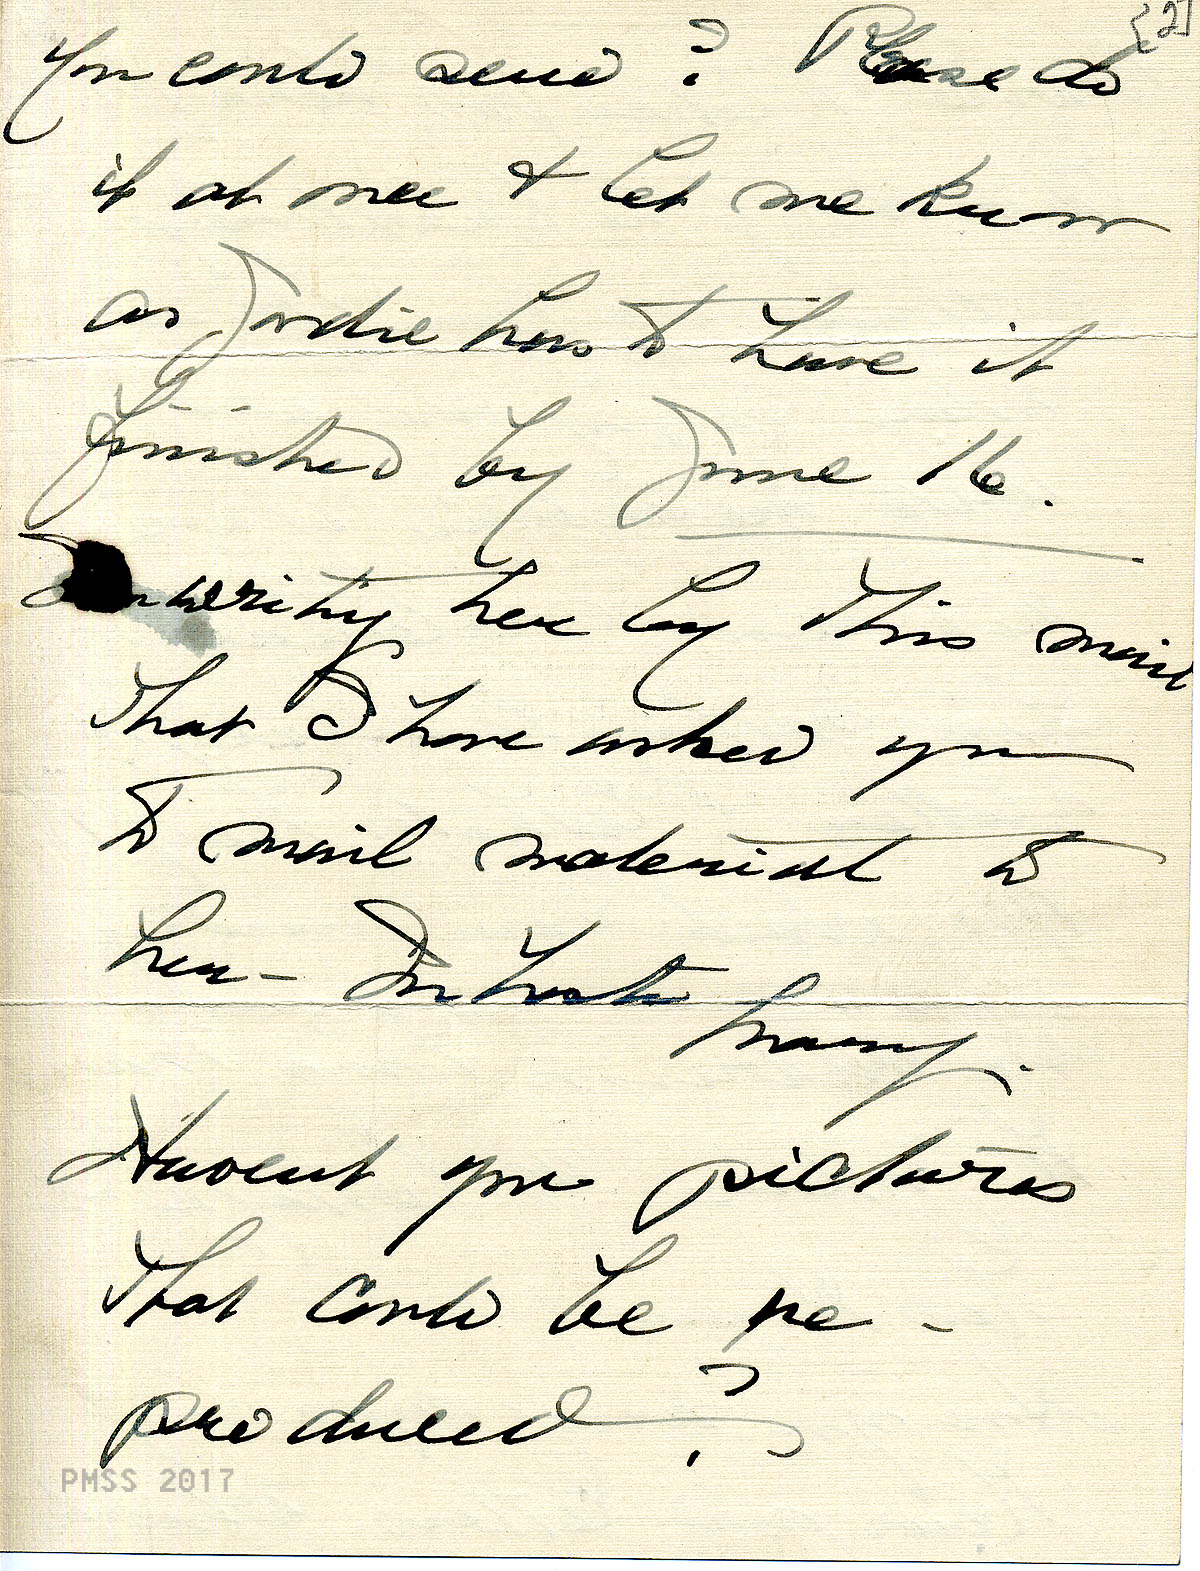 [2]
You could send? Please do
it at once & let me know
as Jordie has to have it
finished by June 16.
writing her by this mail
that I have asked you
to mail material to
her – In haste
Mary.
Havent you pictures
that could be re-
produced?
PMSS 2017